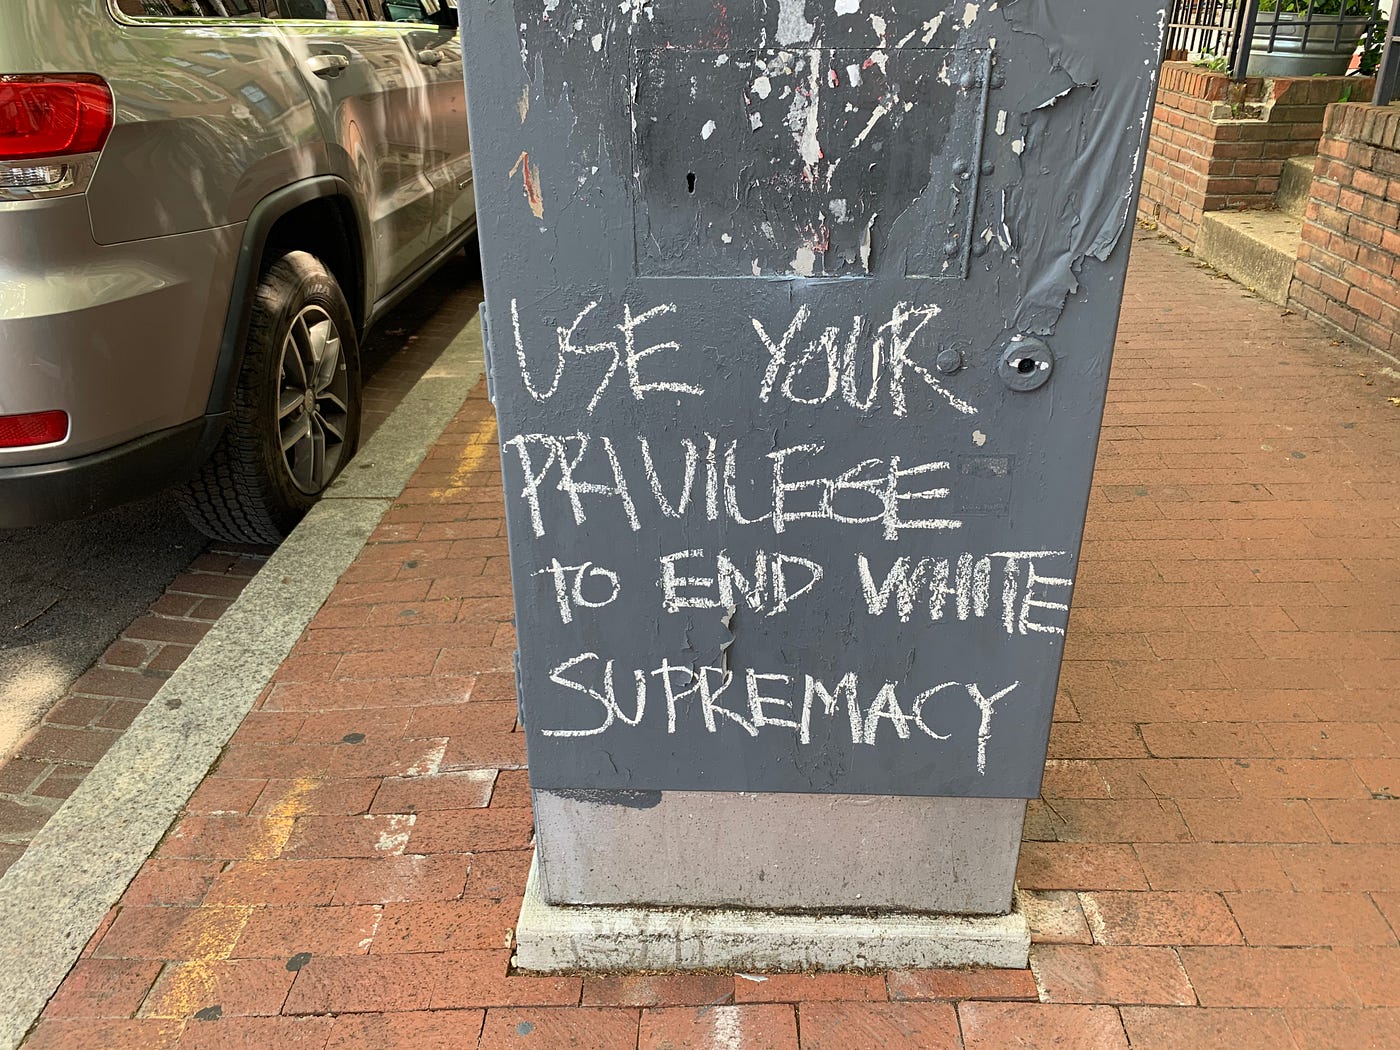 USE YOUR
PRIVILEGE
TO END WHITE
SUPREMACY